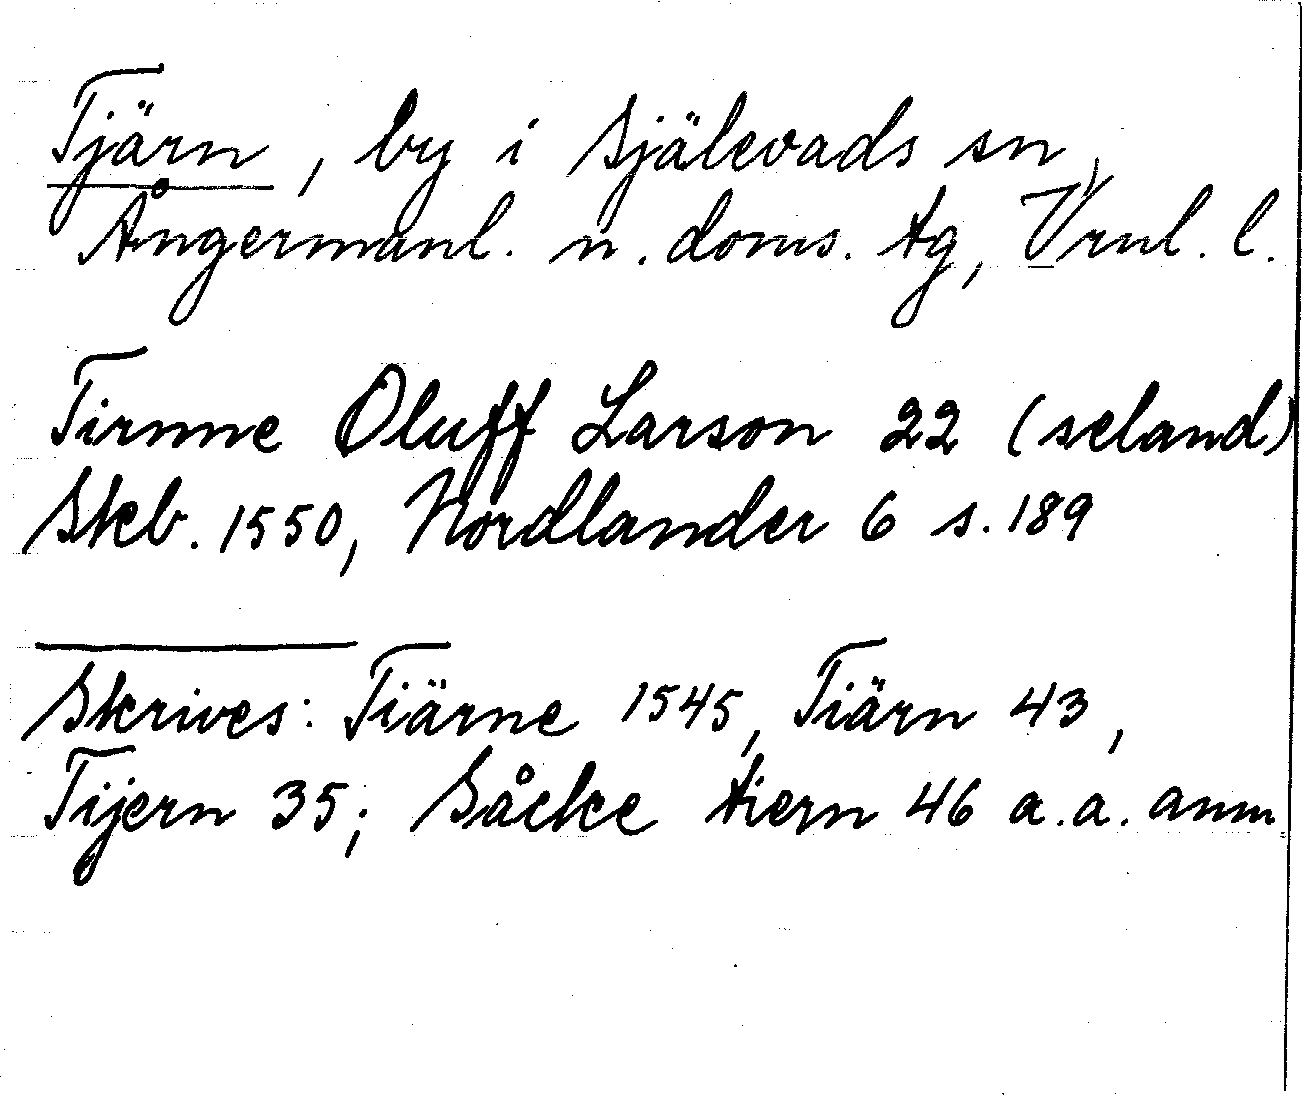 Tjärn, by i Själevads sn,
Ångermanl. n. doms. tg, Vrnl. l.
Tirnne Oluff Larson 22 (seland)
Skb. 1550, Nordlander 6 s. 189
Skrives: Tiärne 1545, Tiärn 43,
Tijern 35; Såcke tiern 46 a.a. anm